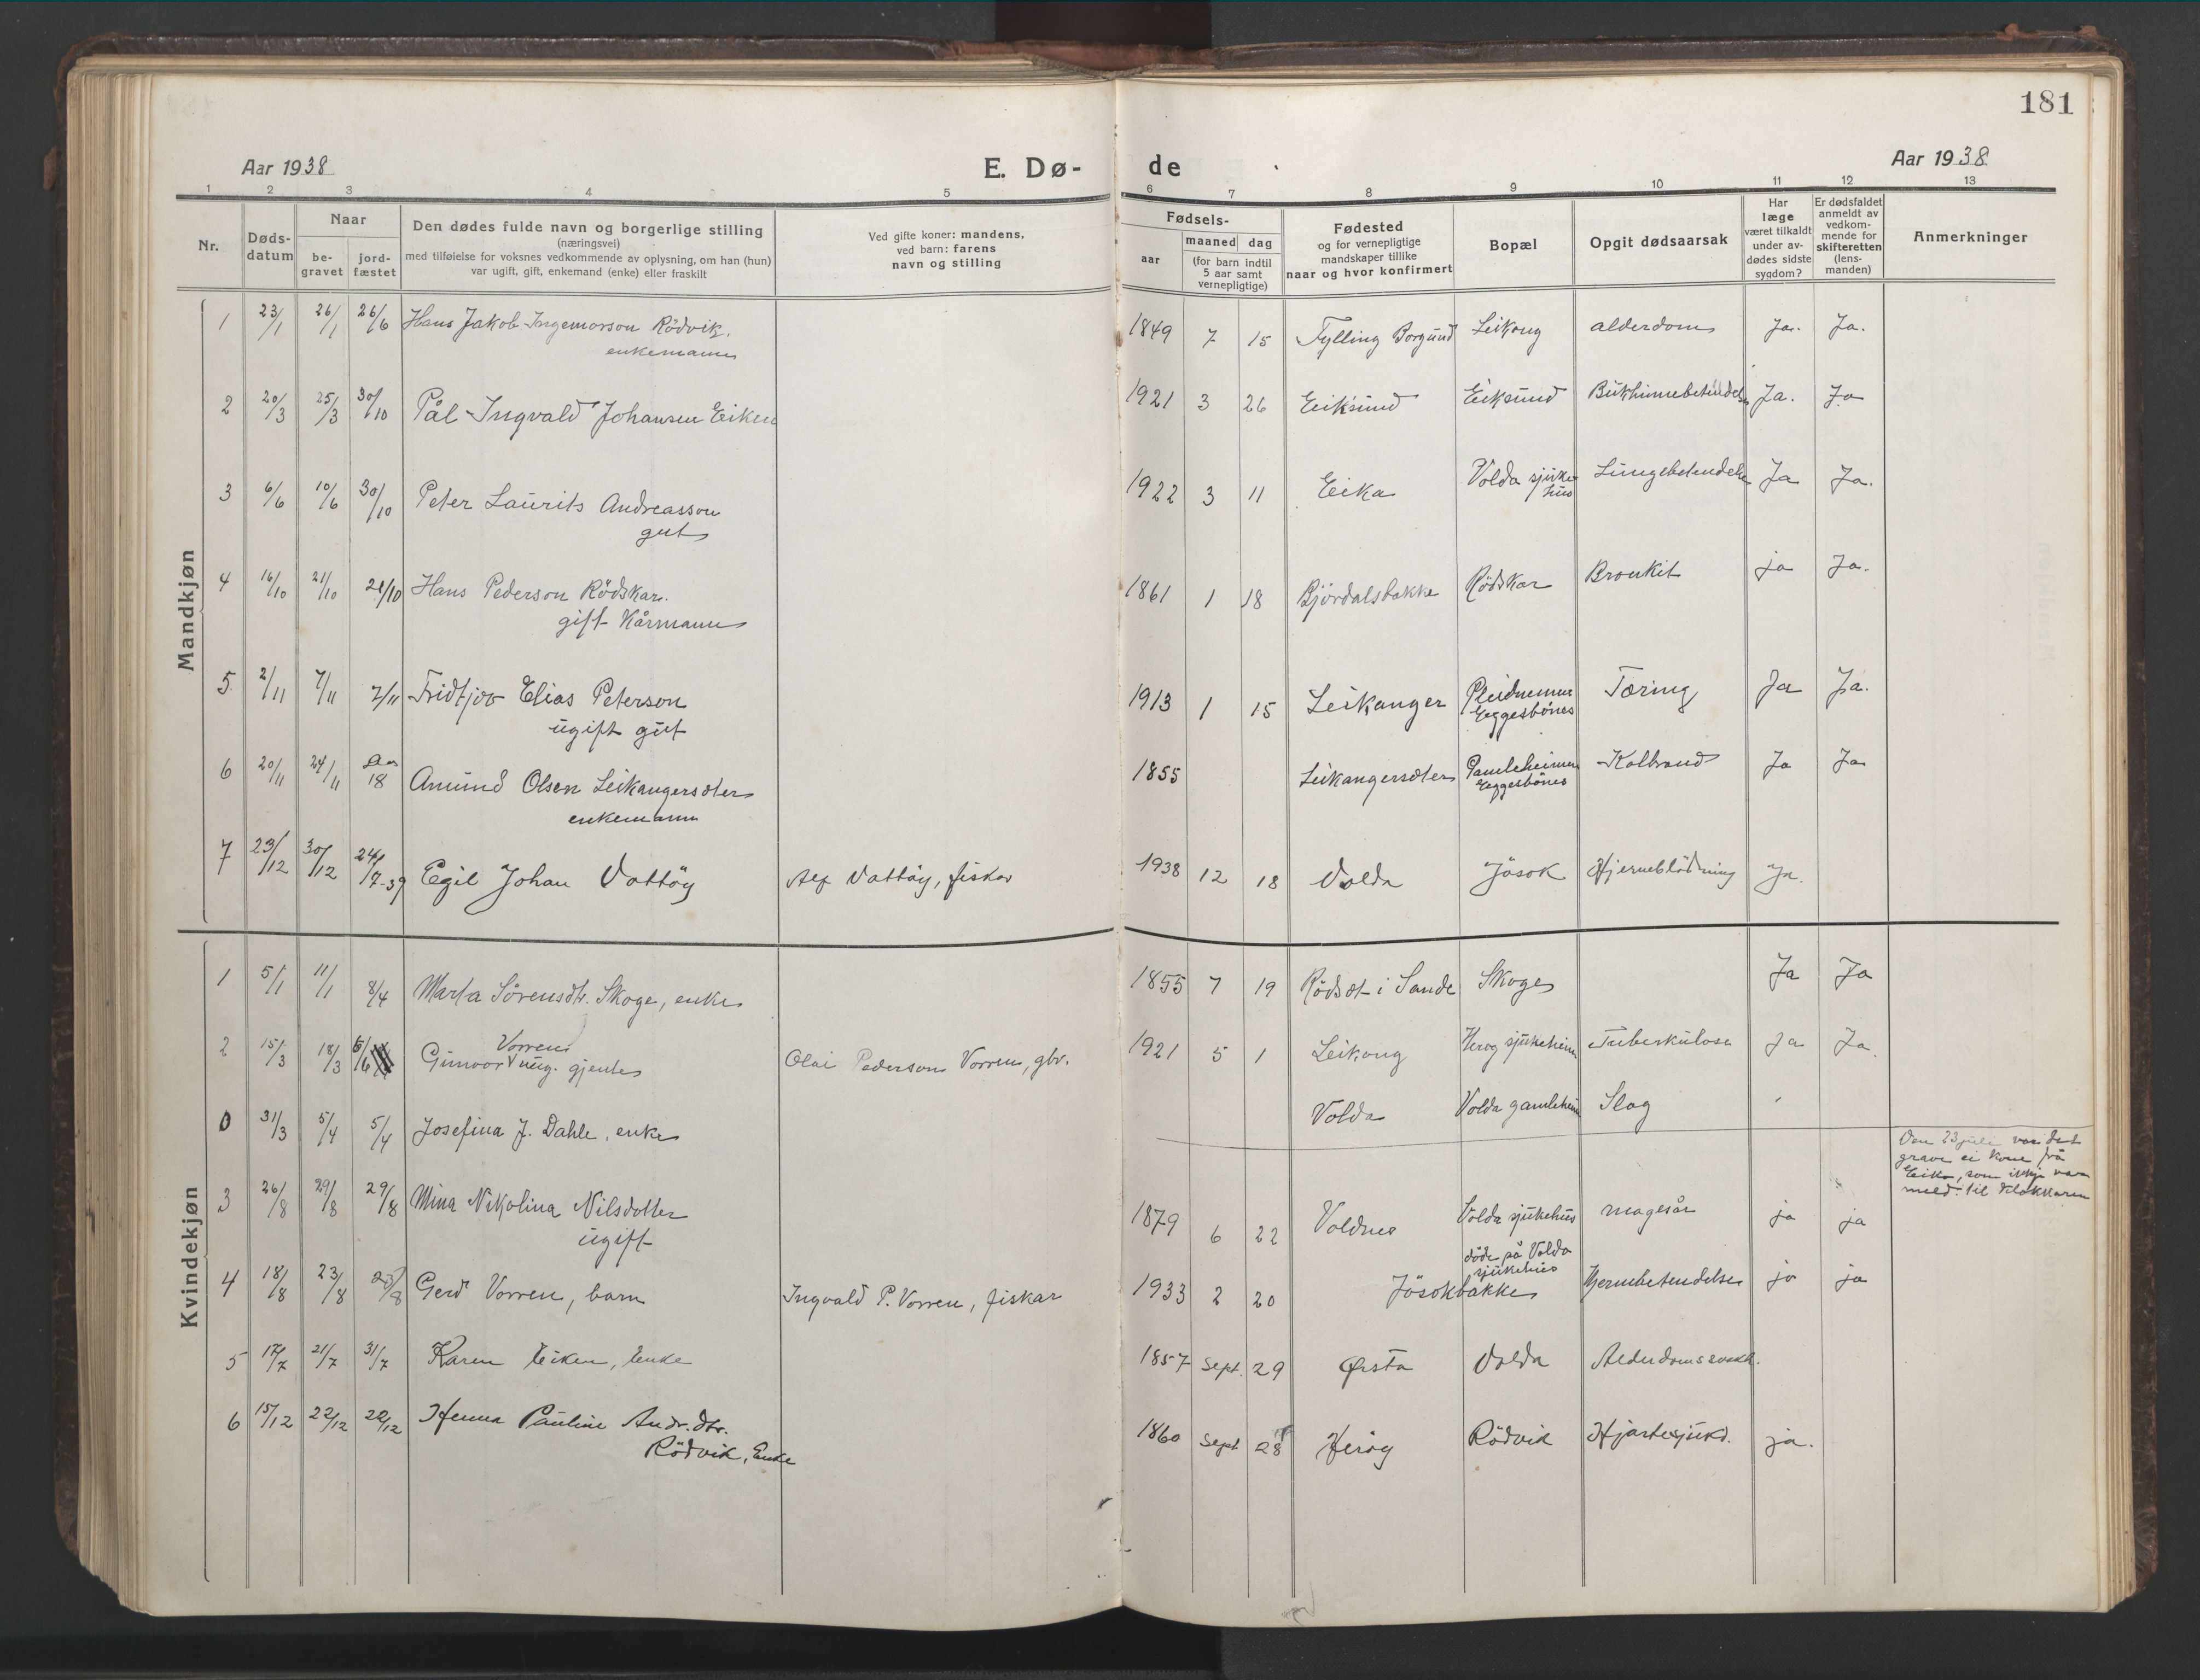 181
Aar 1938
E. Dø-
de
Aar 1938
1 2 3 4 5 6 7 8 9 10 11 12 13
Nr.
Døds-
datum
Naar
be-
gravet
jord-
fæstet
Den dødes fulde navn og borgerlige stilling
(næringsvei)
med tilføielse for voksnes vedkommende av oplysning, om han (hun)
var ugift, gift, enkemand (enke) eller fraskilt
Ved gifte koner: mandens,
ved barn: farens
navn og stilling
Fødsels-
aar
maaned dag
(for barn indtil
5 aar samt
vernepligtige)
Fødested
og for vernepligtige
mandskaper tillike
naar og hvor konfirmert
Bopæl
Opgit dødsaarsak
Har
læge
været tilkaldt
under av-
dødes sidste
sygdom?
Er dødsfaldet
anmeldt av
vedkom-
mende for
skifteretten
(lens-
manden)
Anmerkninger
Mandkjøn
1 23/1 26/1 26/6 Hans Jakob Ingemarson Rödvik, 1849 7 15 Fylling Borgund Leikong alderdom Ja. Ja.
enkemann
2 20/3 25/3 30/10 Pål Ingvald Johansen Eiken 1921 3 26 Eiksund Eiksund Bukhinnebetendelse Ja. Ja
3 6/6 10/6 30/10 Peter Laurits Andreasson 1922 3 11 Eika Volda sjuke Lungebetendelse Ja Ja.
gut hus
4 16/10 21/10 21/10 Hans Pederson Rödskar. 1861 1 18 Björdalsbakke Rödskar Bronkit ja Ja.
gift Kårmann
5 2/11 7/11 7/11 Fridtjov Elias Peterson 1913 1 15 Leikanger Pleieheimen Tæring Ja Ja.
ugift gut Eggesbönes
6 20/11 24/11 18 Amund Olsen Leikangersæter 1855 Leikangersæter Gamleheimen Kolbrand Ja Ja
enkemann Eggesbönes
7 23/12 30/12 24/7-39 Egil Johan Vattöy Alf Vattöy, fiskar 1938 12 18 Volda Jösok Hjerneblödning Ja.
Kvindekjøn
1 5/1 11/1 8/4 Marta Sörensdtr. Skoge, enke 1855 7 19 Rödset i Sande Skoge Ja Ja
Vorren
2 15/3 18/3 6/6 Gunvor ung. gjente Olai Pederson Vorren, gbr. 1921 5 1 Leikong Heröy sjukeheim Tuberkulose Ja Ja.
0 31/3 5/4 5/4 Josefina J. Dahle, enke Volda Volda gamleheim Slag
Den 23 juli var det
grave ei kone frå
Eika, som ikkje var
meld. til klokkaren
3 26/8 29/8 29/8 Mina Nikolina Nilsdotter 1879 6 22 Voldnes Volda sjukehus magesår ja ja
ugift
döde på Volda
sjukehus
4 18/8 23/8 23/8 Gerd Vorren, barn Ingvald P. Vorren, fiskar 1933 2 20 Jösokbakke Hjernebetendelse ja ja
5 17/7 21/7 31/7 Karen Eiken, Enke 1857 Sept. 29 Ørsta Volda Alderdomssvakh.
6 15/12 22/12 22/12 Henna Pauline Andr.dtr. 1860 Sept 28 Heröy Rödvik Hjartesjukd. ja.
Rödvik, Enke